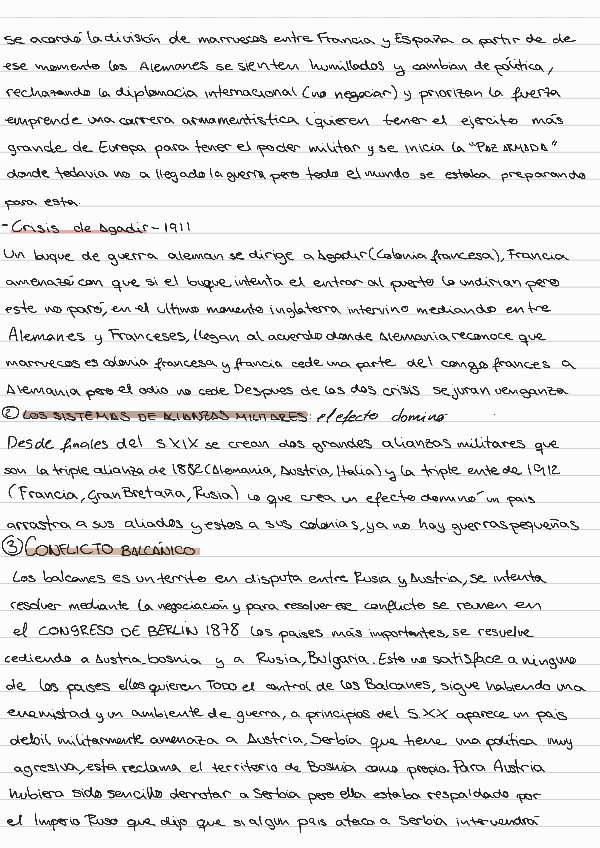 se acordó la división de marruecos entre Francia y España a partir de de
ese momento los Alemanes se sienten humillados y cambian de política,
rechazando la diplomacia internacional (no negociar) y priorizan la fuerza
emprende una carrera armamentistica (quieren tener el ejercito más
grande de Europa para tener el poder militar y se inicia la "PAZ ARMADA"
donde todavia no a llegado la guerra pero todo el mundo se estaba preparando
para esta.
- Crisis de Agadir - 1911
Un buque de guerra aleman se dirige a Agadir (Colonia francesa), Francia
amenazó con que si el buque intenta el entrar al puerto lo undirian pero
este no paró, en el ultimo momento inglaterra intervino mediando entre
Alemanes y Franceses, llegan al acuerdo donde Alemania reconoce que
marruecos es colonia francesa y francia cede una parte del congo frances a
Alemania pero el odio no cede Despues de las dos crisis se juran venganza
② LOS SISTEMAS DE ALIANZAS MILITARES: el efecto domino
Desde finales del S XIX se crean dos grandes alianzas militares que
son la triple alianza de 1882 (Alemania, Austria, Italia) y la triple entede 1912
(Francia, Gran Bretaña, Rusia) lo que crea un efecto domino un pais
arrastra a sus aliados y estos a sus colonias, ya no hay guerras pequeñas
③ CONFLICTO BALCÁNICO
Los balcanes es un territo en disputa entre Rusia y Austria, se intenta
resolver mediante la negociación y para resolver ese conflicto se reunen en
el CONGRESO DE BERLIN 1878 los paises más importantes, se resuelve
cediendo a Austria bosnia y a Rusia, Bulgaria. Esto no satisface a ninguno
de los paises ellos quieren TODO el control de los Balcanes, sigue habiendo una
enemistad y un ambiente de guerra, a principios del S.XX aparece un pais
debil militarmente amenaza a Austria, Serbia que tiene una política muy
agresiva, esta reclama el territorio de Bosnia como propio. Para Austria
hubiera sido sencillo derrotar a Serbia pero ella estaba respaldado por
el Imperio Ruso que dijo que si algun pais ataca a Serbia intervendrá